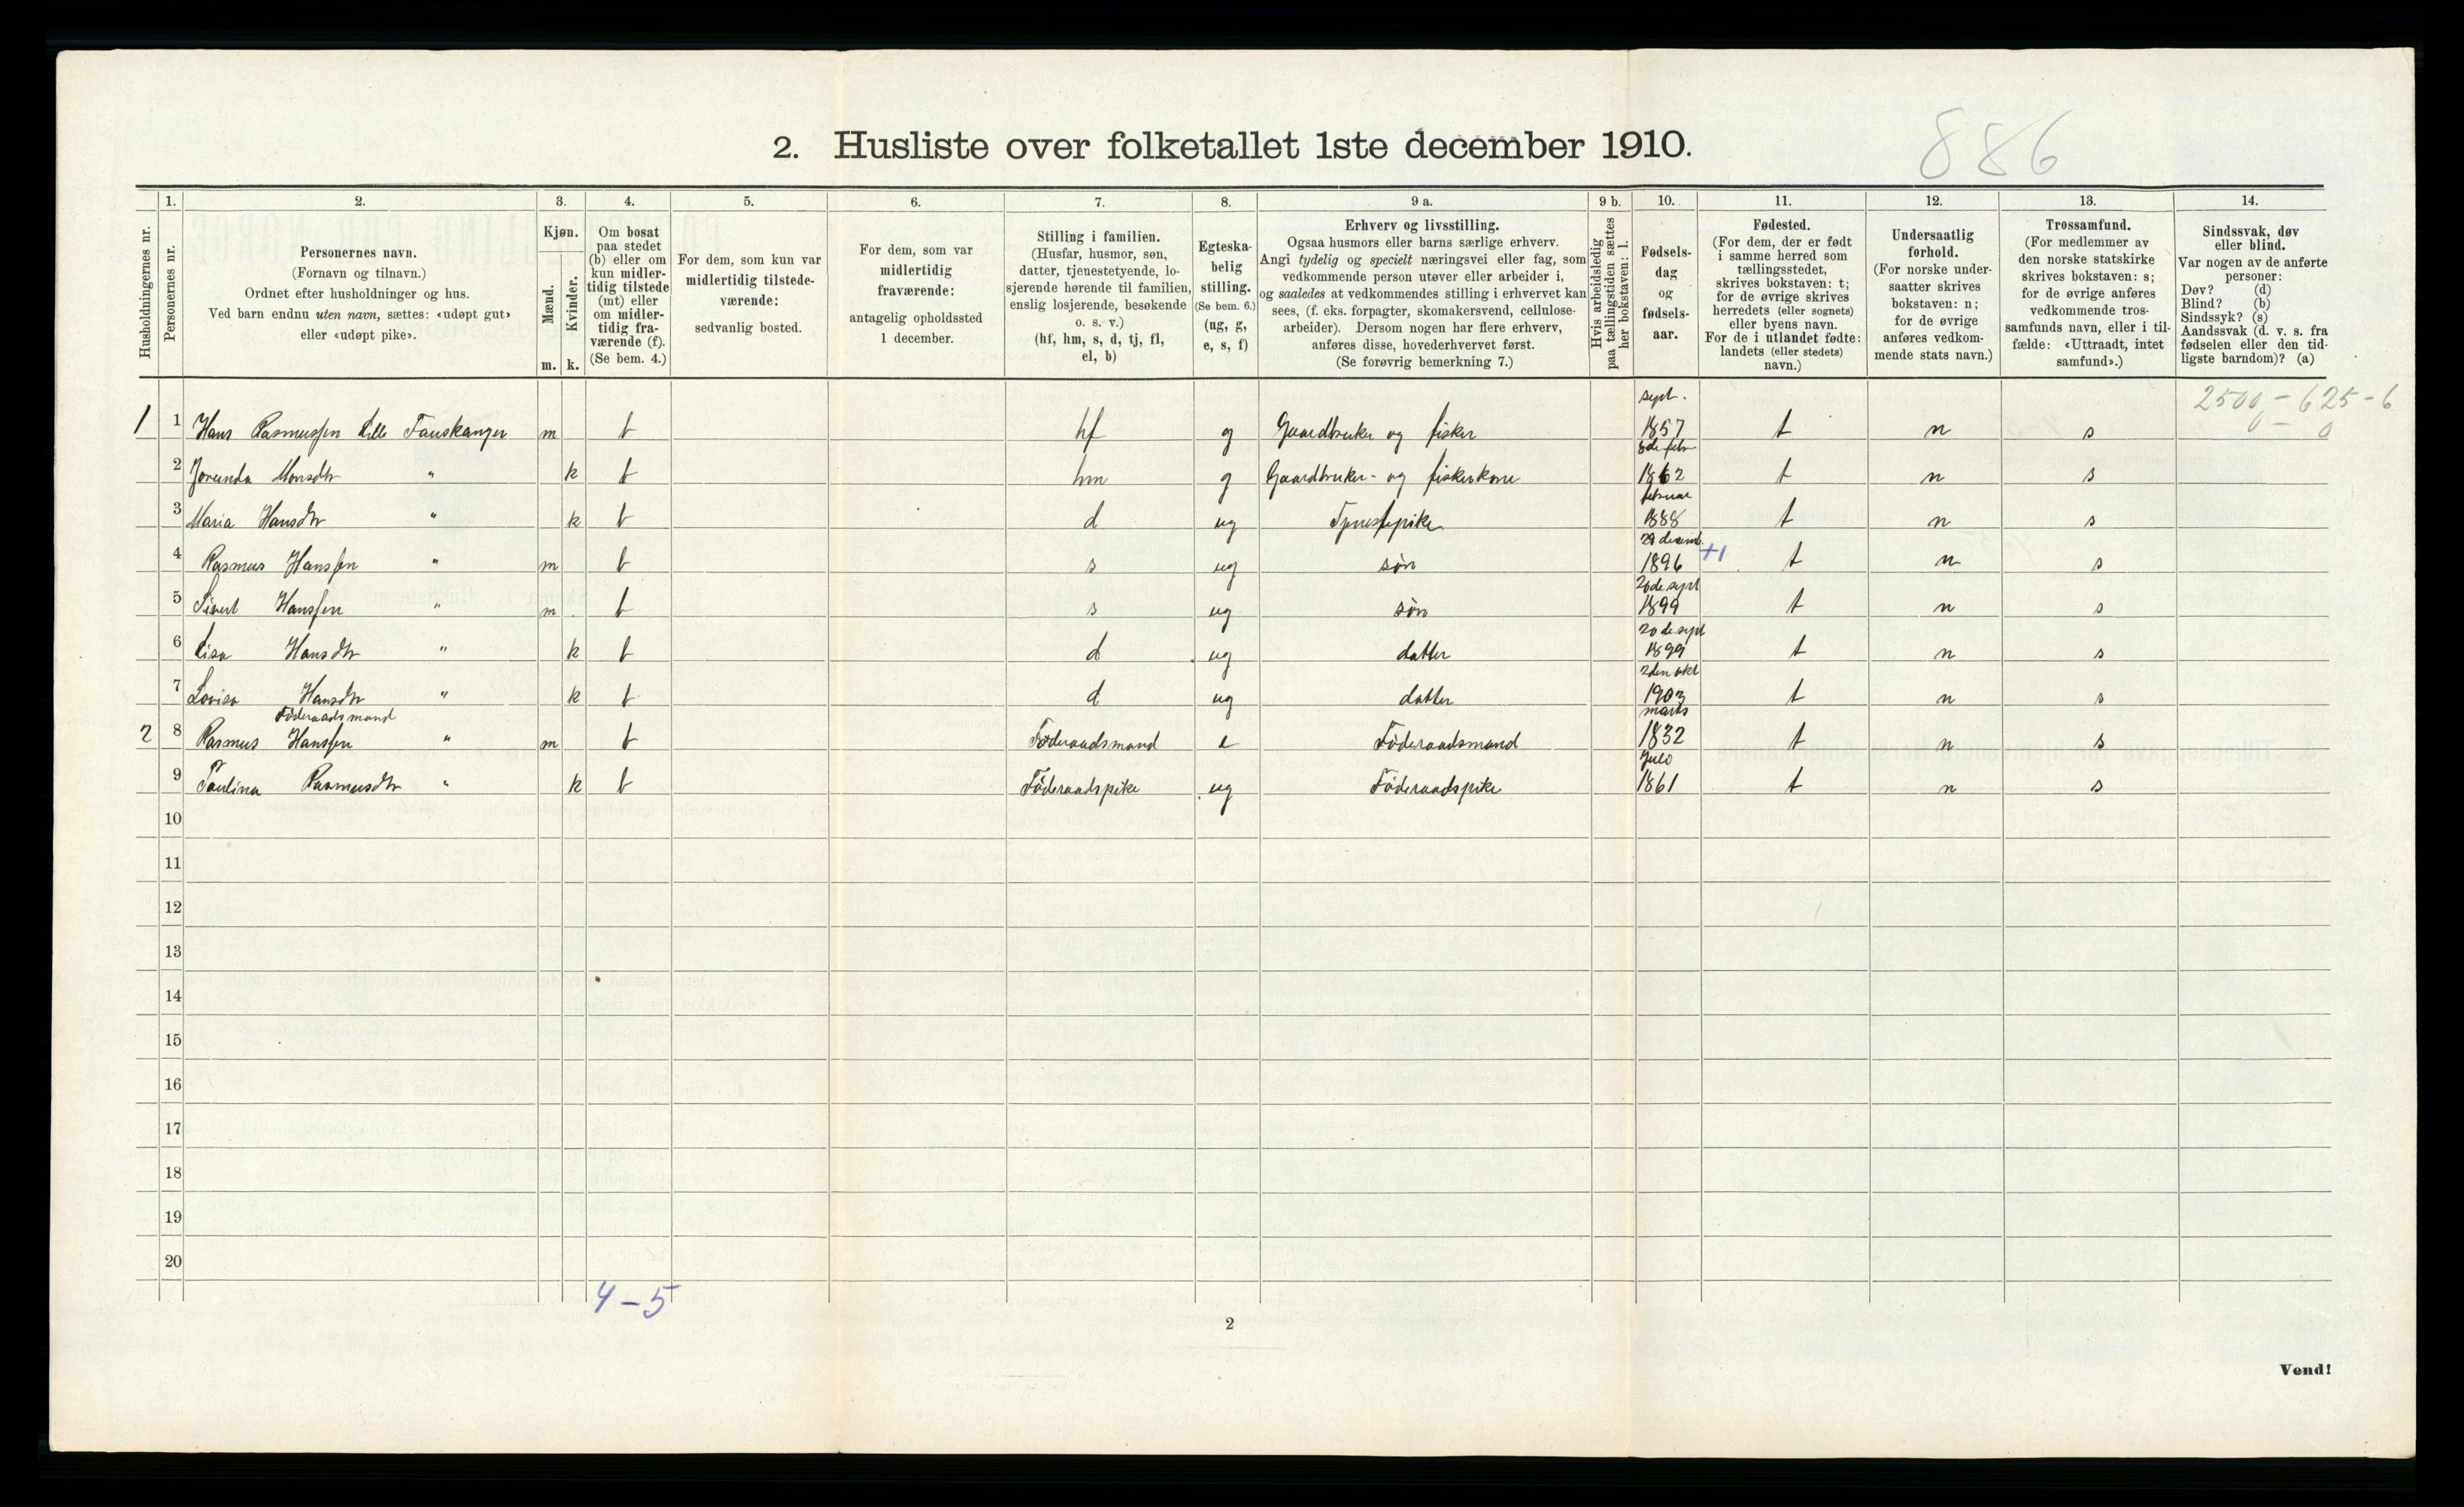 886
2. Husliste over folketallet 1ste december 1910.
1. 2. 3. 4. 5. 6. 7. 8. 9 a. 9 b. 10. 11. 12. 13. 14.
Husholdningernes nr.
Personernes nr.
Personernes navn.
(Fornavn og tilnavn.)
Ordnet efter husholdninger og hus.
Ved barn endnu uten navn, sættes: «udøpt gut»
eller «udøpt pike».
Kjøn.
Mænd.
Kvinder.
m. k.
Om bosat
paa stedet
(b) eller om
kun midler-
tidig tilstede
(mt) eller
om midler-
tidig fra-
værende (f).
(Se bem. 4.)
For dem, som kun var
midlertidig tilstede-
værende:
sedvanlig bosted.
For dem, som var
midlertidig
fraværende:
antagelig opholdssted
1 december.
Stilling i familien.
(Husfar, husmor, søn,
datter, tjenestetyende, lo-
sjerende hørende til familien,
enslig losjerende, besøkende
o. s. v.)
(hf, hm, s, d, tj, fl,
el, b)
Egteska-
belig
stilling.
(Se bem. 6.)
(ug, g,
e, s, f)
Erhverv og livsstilling.
Ogsaa husmors eller barns særlige erhverv.
Angi tydelig og specielt næringsvei eller fag, som
vedkommende person utøver eller arbeider i,
og saaledes at vedkommendes stilling i erhvervet kan
sees, (f. eks. forpagter, skomakersvend, cellulose-
arbeider). Dersom nogen har flere erhverv,
anføres disse, hovederhvervet først.
(Se forøvrig bemerkning 7.)
Hvis arbeidsledig
paa tællingstiden sættes
her bokstaven: l.
Fødsels-
dag
og
fødsels-
aar.
Fødested.
(For dem, der er født
i samme herred som
tællingsstedet,
skrives bokstaven: t;
for de øvrige skrives
herredets (eller sognets)
eller byens navn.
For de i utlandet fødte:
landets (eller stedets)
navn.)
Undersaatlig
forhold.
(For norske under-
saatter skrives
bokstaven: n;
for de øvrige
anføres vedkom-
mende stats navn.)
Trossamfund.
(For medlemmer av
den norske statskirke
skrives bokstaven: s;
for de øvrige anføres
vedkommende tros-
samfunds navn, eller i til-
fælde: «Uttraadt, intet
samfund».)
Sindssvak, døv
eller blind.
Var nogen av de anførte
personer:
Døv? (d)
Blind? (b)
Sindssyk? (s)
Aandssvak (d. v. s. fra
fødselen eller den tid-
ligste barndom)? (a)
2500 - 625 - 6
0 - 0
sept.
1 1 Hans Rasmussen Lille Fauskanger m b hf g Gaardbruker og fisker 1857 t n s
8de febr
2 Jorunda Monsdtr " k b hm g Gaardbruker- og fiskerkone 1862 t n s
februar
3 Maria Hansdtr " k b d ug Tjenestepike 1888 t n s
29 decemb.
4 Rasmus Hanssen " m b s ug søn 1896 +1 t n s
20de sept
5 Sivert Hanssen " m b s ug søn 1899 t n s
20de sept
6 Lisa Hansdtr " k b d ug datter 1899 t n s
2den okt
7 Lovisa Hansdtr " k b d ug datter 1903 t n s
Föderaadsmand marts
2 8 Rasmus Hanssen " m b Föderaadsmand e Föderaadsmand 1832 t n s
Julo
9 Paulina Rasmusdtr " k b Föderaadspike ug Föderaadspike 1861 t n s
10
11
12
13
14
15
16
17
18
19
20
4-5
2
Vend!